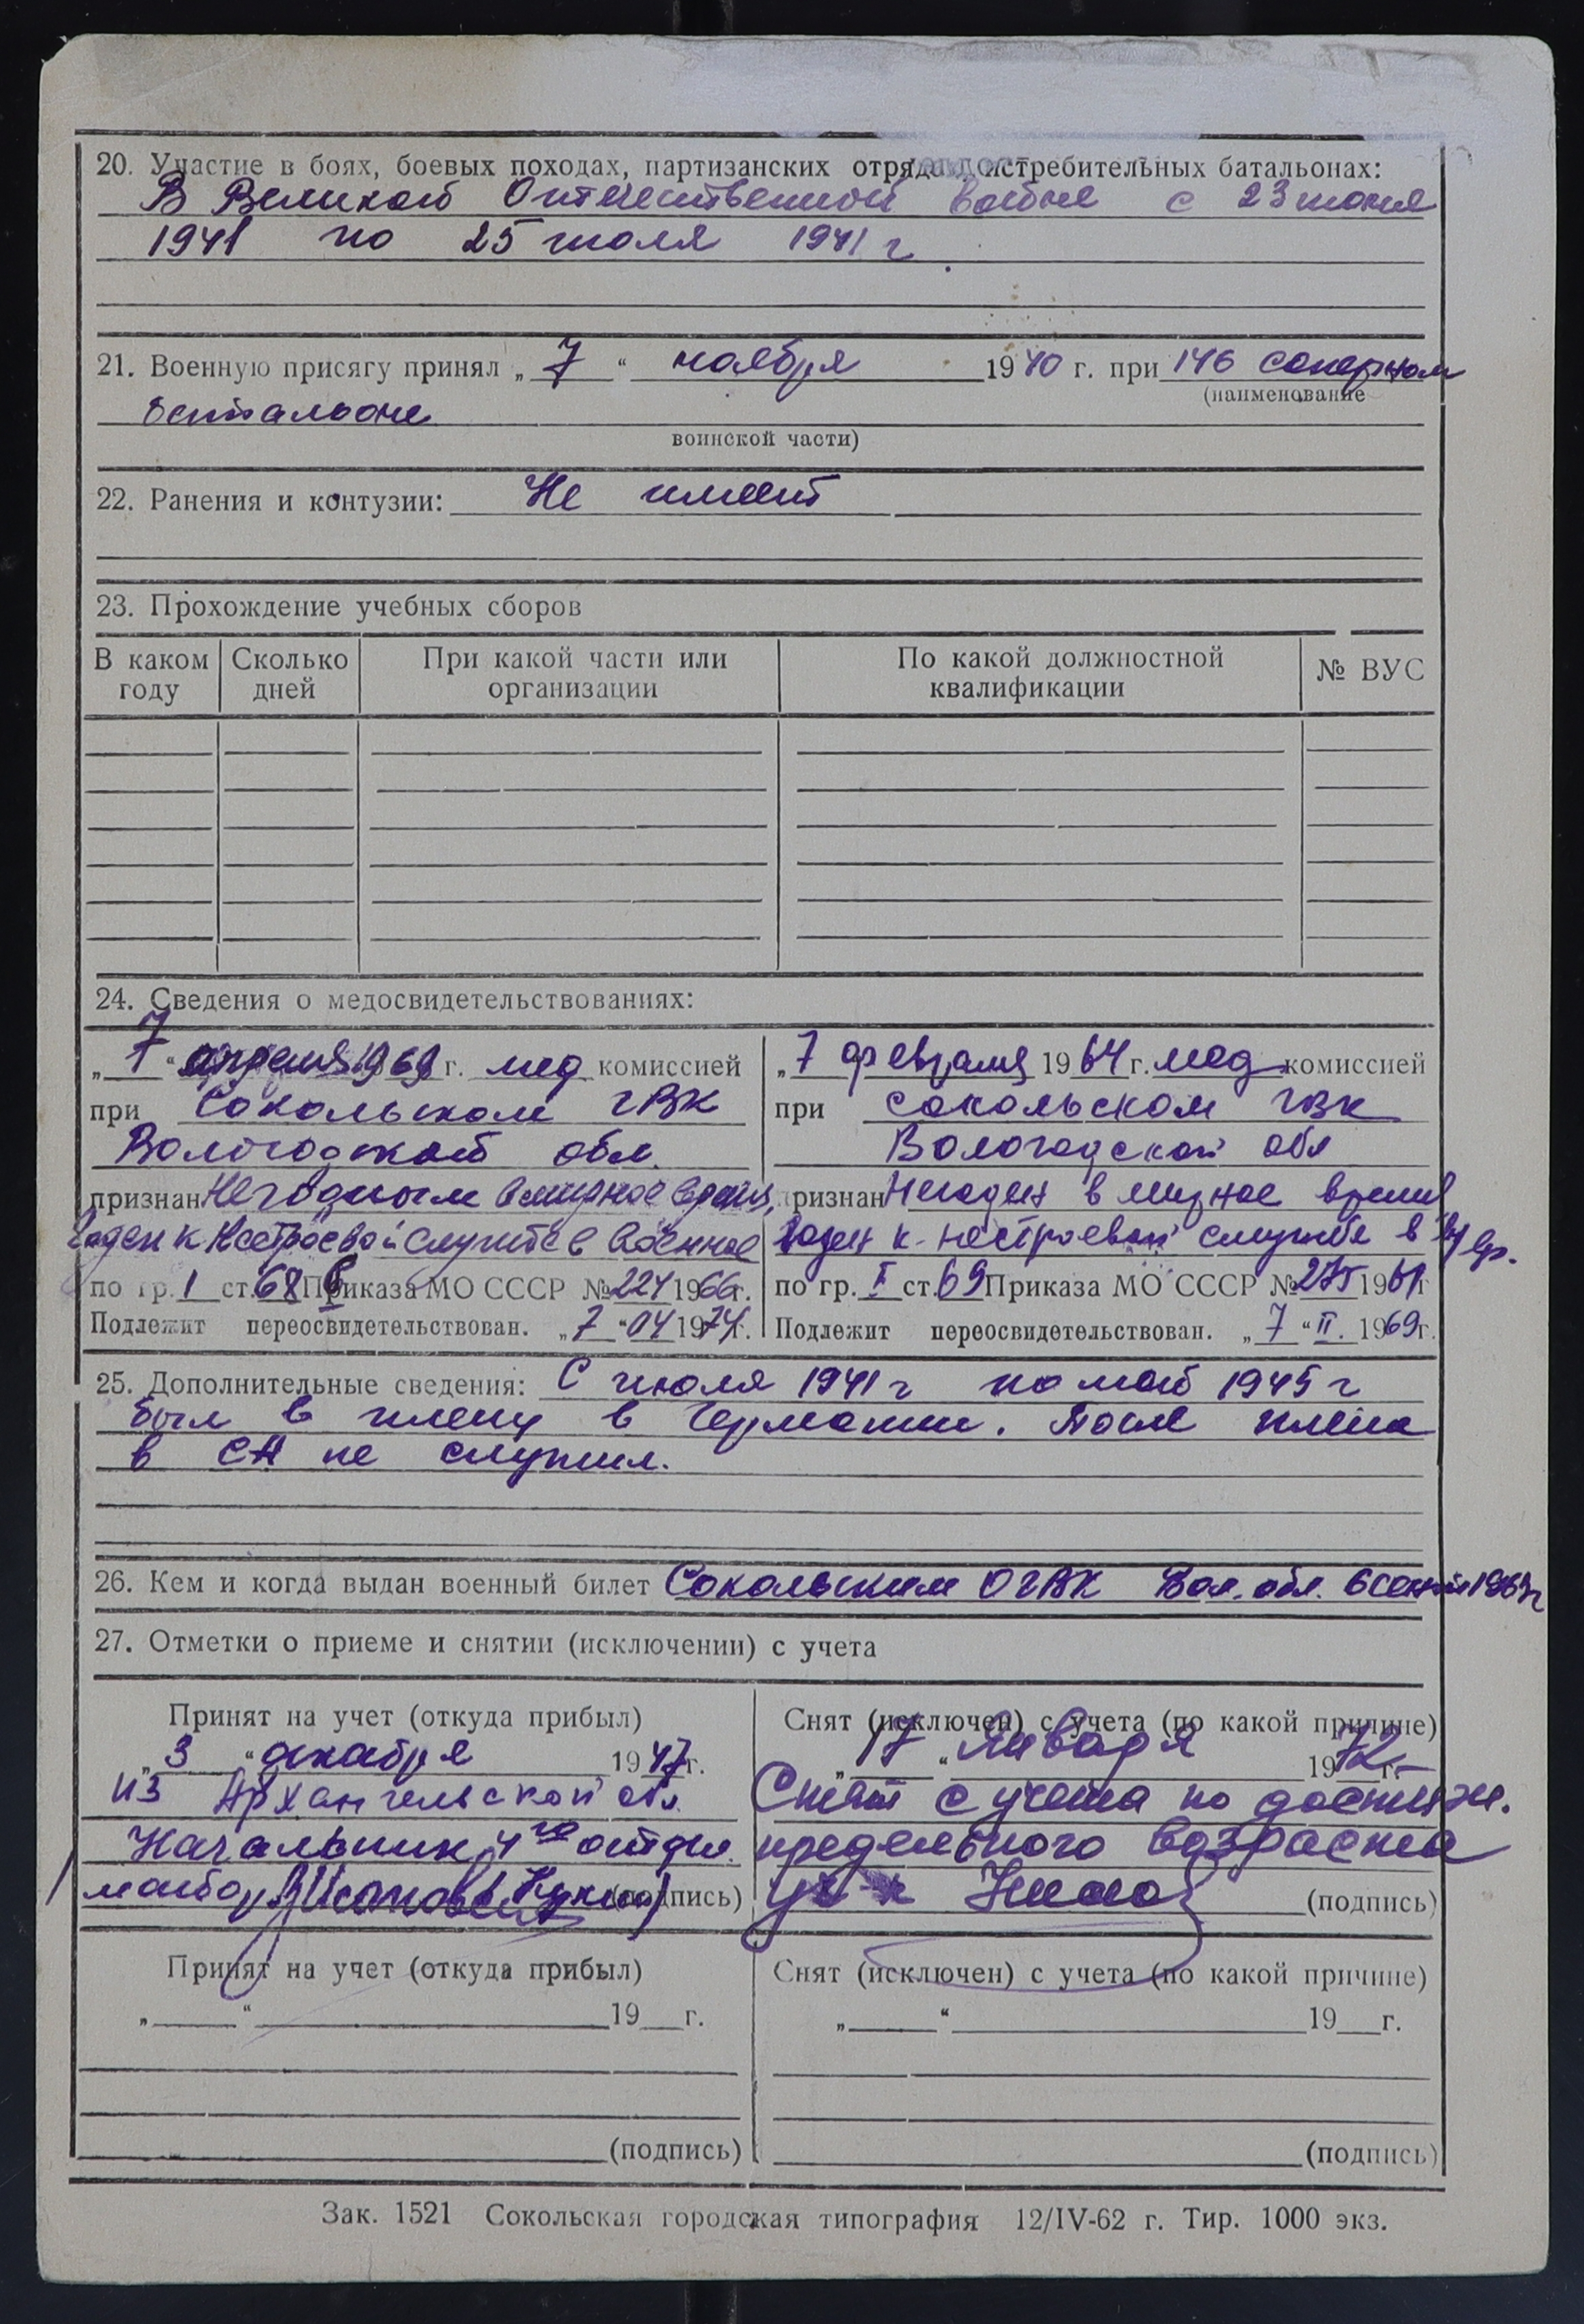 20. Участие в боях, боевых походах, партизанских отрядах, истребительных батальонах:
В Великой Отечественной войне с 23 июня
1941 по 25 июля 1941 г.
21. Военную присягу принял „7“ ноября 1940 г. при 146 саперном
(наименование
батальоне
воинской части)
22. Ранения и контузии: Не имеет
23. Прохождение учебных сборов
В каком году Сколько дней При какой части или организации По какой должностной квалификации № ВУС
24. Сведения о медосвидетельствованиях:
„7“ апреля 1969 г. мед комиссией
при Сокольском ГВК
Вологодской обл.
признан Негодным в мирное время,
Годен к нестроевой службе в военное
по гр. 1 ст. 68 Приказа МО СССР № 224 1966 г.
Подлежит переосвидетельствован. „7“ 04 1974 г.
„7 февраля 1964 г. мед комиссией
при Сокольском ГВК
Вологодской обл
признан Негоден в мирное время
годен к нестроевой службе в вр.
по гр. I ст. 69 Приказа МО СССР № 275 1961 г
Подлежит переосвидетельствован. „7“ II. 1969 г.
25. Дополнительные сведения: С июля 1941 г по май 1945 г
был в плену в Германии. После плена
в СА не служил.
26. Кем и когда выдан военный билет Сокольским ОГВК Вол. обл. 1963 г
27. Отметки о приеме и снятии (исключении) с учета
Принят на учет (откуда прибыл)
„3“ декабря 1947 г.
из Архангельской обл.
Начальник 4го отдел.
майор (подпись)
Снят (исключен) с учета (по какой причине)
„17“ Января 1972 г.
Снят с учета по достиж.
предельного возраста
(подпись)
Принят на учет (откуда прибыл)
„ “ 19 г.
(подпись)
Снят (исключен) с учета (по какой причине)
„ “ 19 г.
(подпись)
Зак. 1521 Сокольская городская типография 12/IV-62 г. Тир. 1000 экз.